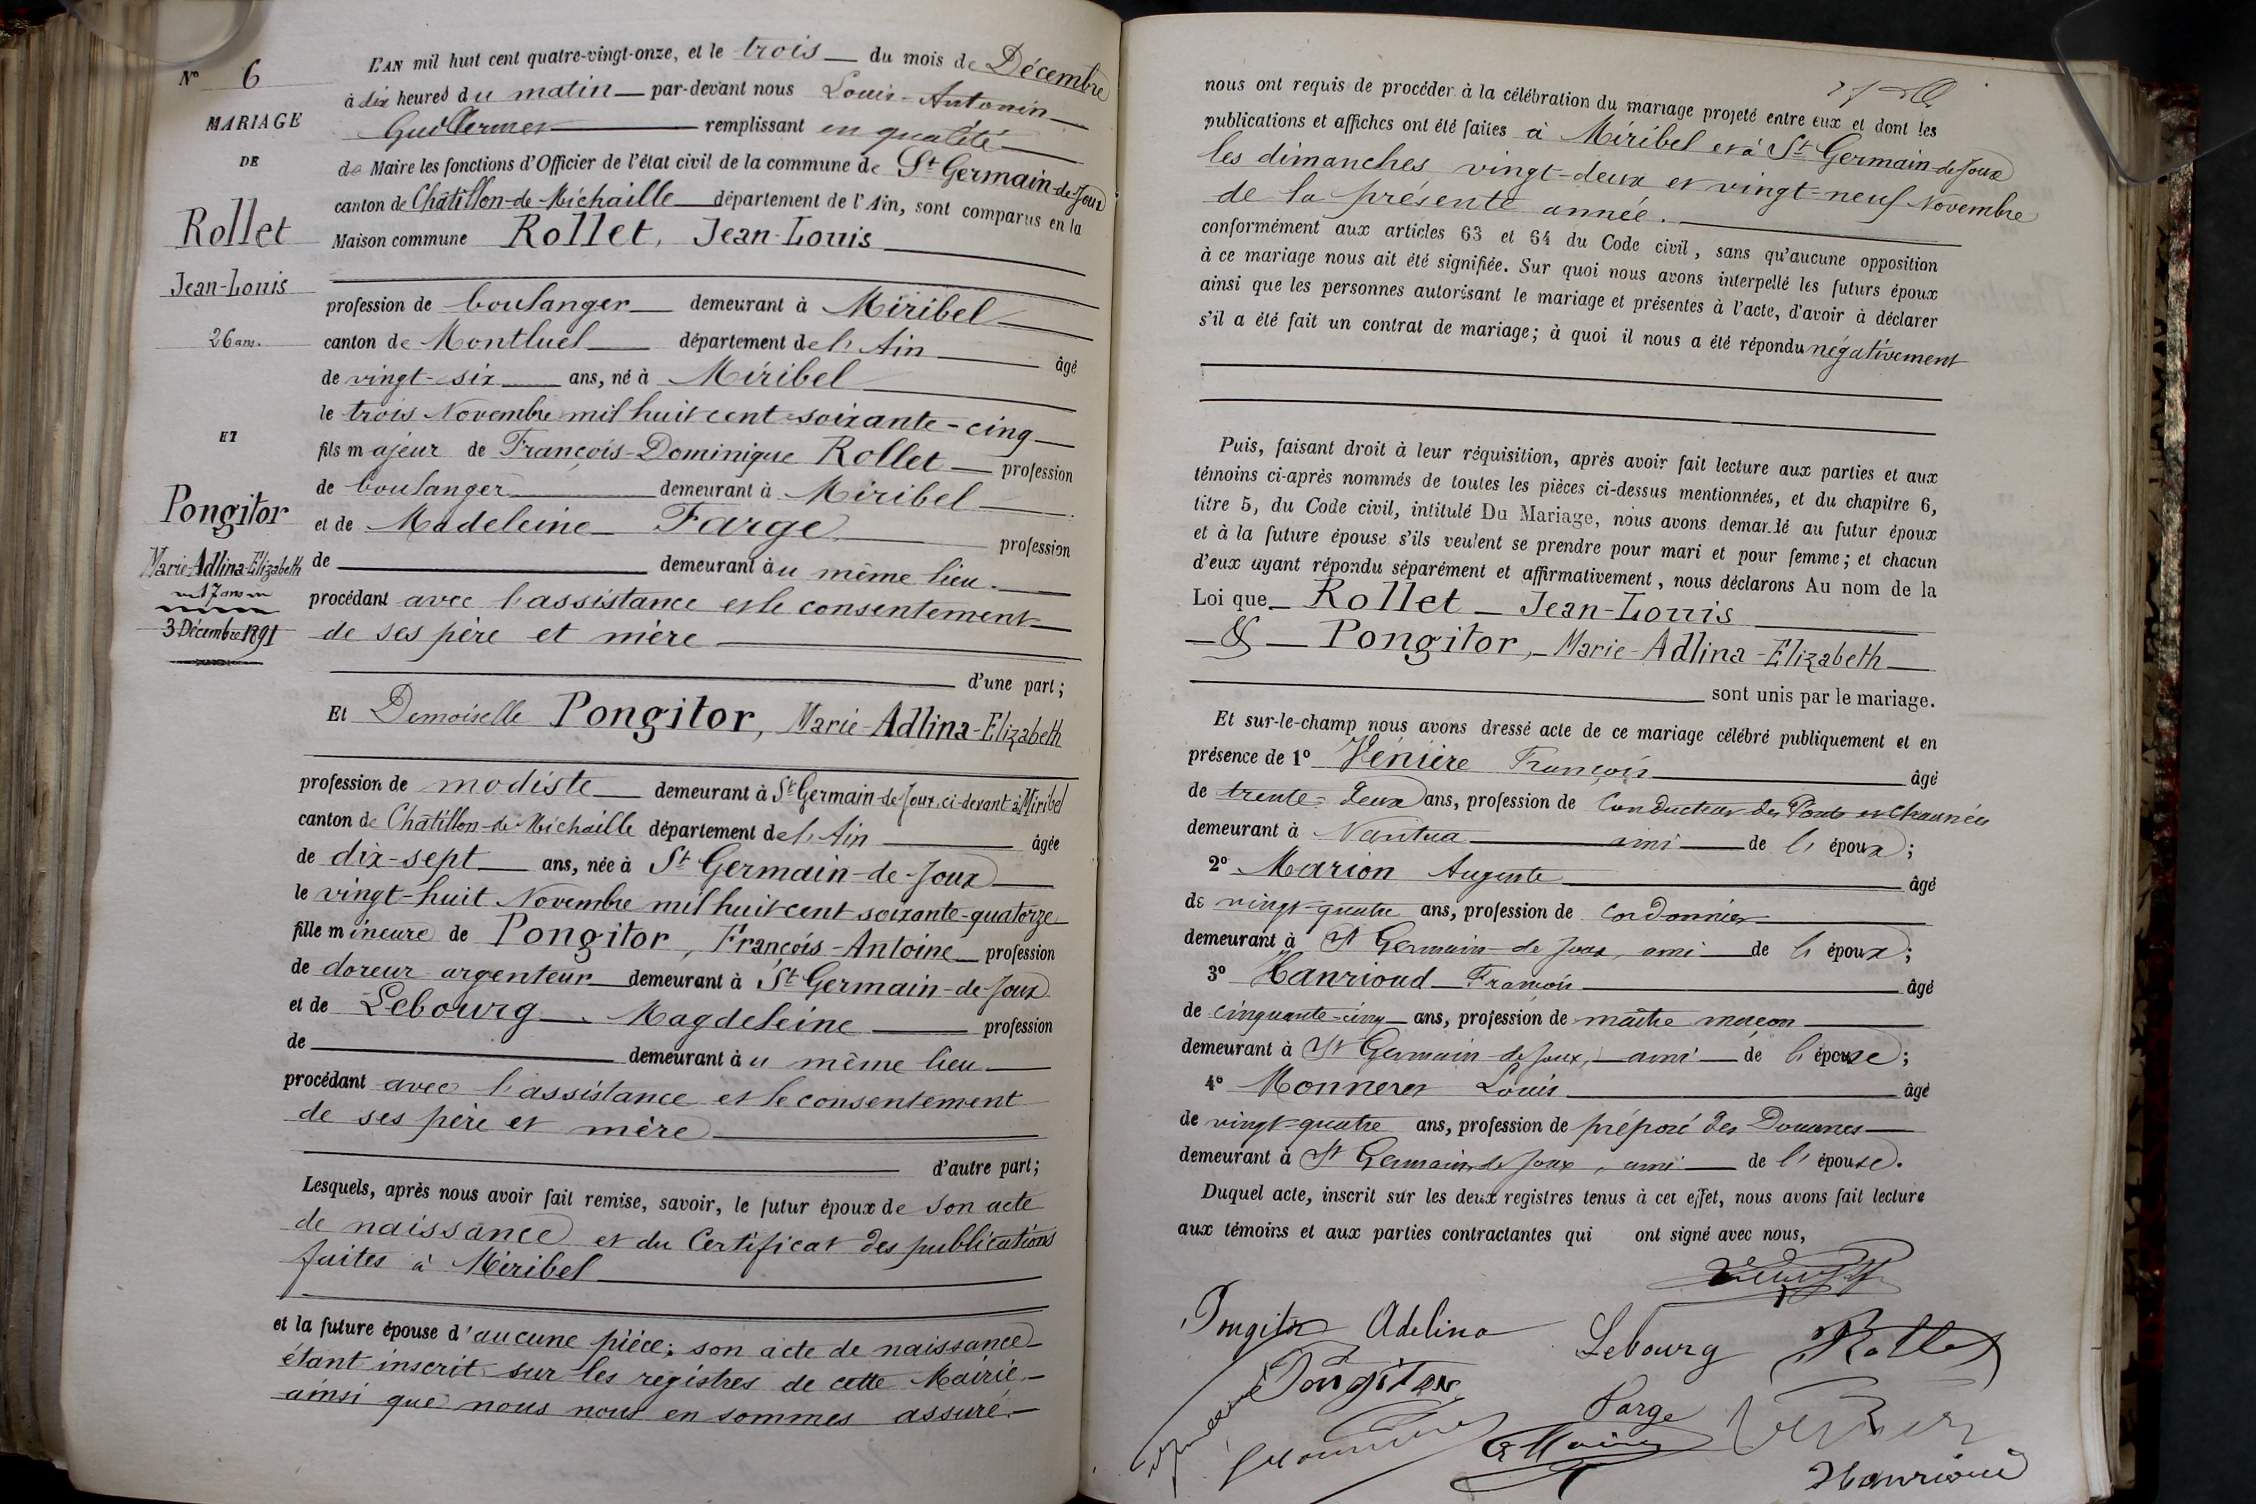 N° 6
MARIAGE
DE
Rollet
Jean-Louis
26 ans.
ET
Pongitor
Marie-Adlina-Elizabeth
17 ans
3 Décembre 1891
L'AN mil huit cent quatre-vingt-onze, et le trois du mois de Décembre
à dix heures du matin par-devant nous Louis-Antonin
Guillermet remplissant en qualité
de Maire les fonctions d'Officier de l'état civil de la commune de St Germain-de-Joux
canton de Châtillon-de-Michaille département de l'Ain, sont comparus en la
Maison commune Rollet, Jean-Louis
profession de boulanger demeurant à Miribel
canton de Montluel département de l'Ain âgé
de vingt-six ans, né à Miribel
le trois Novembre mil huit cent soixante-cinq
fils majeur de François-Dominique Rollet profession
de boulanger demeurant à Miribel
et de Madeleine Farge profession
de demeurant au même lieu.
procédant avec l'assistance et le consentement
de ses père et mère
d'une part;
Et Demoiselle Pongitor, Marie-Adlina-Elizabeth
profession de modiste demeurant à St Germain-de-Joux, ci-devant à Miribel
canton de Châtillon-de-Michaille département de l'Ain âgée
de dix-sept ans, née à St Germain-de-Joux
le vingt-huit Novembre mil huit cent soixante-quatorze
fille mineure de Pongitor, François-Antoine profession
de doreur argenteur demeurant à St Germain-de-Joux
et de Lebourg Magdeleine profession
de demeurant au même lieu
procédant avec l'assistance et le consentement
de ses père et mère
d'autre part;
Lesquels, après nous avoir fait remise, savoir, le futur époux de son acte
de naissance et du Certificat des publications
faites à Miribel
et la future épouse d'aucune pièce; son acte de naissance
étant inscrit sur les registres de cette Mairie
ainsi que nous nous en sommes assuré.
nous ont requis de procéder à la célébration du mariage projeté entre eux et dont les
publications et affiches ont été faites à Miribel et à St Germain-de-Joux
les dimanches vingt-deux et vingt-neuf Novembre
de la présente année.
conformément aux articles 63 et 64 du Code civil, sans qu'aucune opposition
à ce mariage nous ait été signifiée. Sur quoi nous avons interpellé les futurs époux
ainsi que les personnes autorisant le mariage et présentes à l'acte, d'avoir à déclarer
s'il a été fait un contrat de mariage; à quoi il nous a été répondu négativement
Puis, faisant droit à leur réquisition, après avoir fait lecture aux parties et aux
témoins ci-après nommés de toutes les pièces ci-dessus mentionnées, et du chapitre 6,
titre 5, du Code civil, intitulé Du Mariage, nous avons demandé au futur époux
et à la future épouse s'ils veulent se prendre pour mari et pour femme; et chacun
d'eux ayant répondu séparément et affirmativement, nous déclarons Au nom de la
Loi que Rollet Jean-Louis
& Pongitor, Marie-Adlina-Elizabeth
sont unis par le mariage.
Et sur-le-champ nous avons dressé acte de ce mariage célébré publiquement et en
présence de 1° Vénière François âgé
de trente-deux ans, profession de Conducteur des Ponts et Chaussées
demeurant à Nantua ami de l'époux;
2° Marion Auguste âgé
de vingt-quatre ans, profession de Cordonnier
demeurant à St Germain-de-Joux, ami de l'époux;
3° Hanrioud François âgé
de cinquante-cinq ans, profession de maître maçon
demeurant à St Germain-de-Joux, ami de l'épouse;
4° Monneret Louis âgé
de vingt-quatre ans, profession de préposé des Douanes
demeurant à St Germain-de-Joux, ami de l'épouse.
Duquel acte, inscrit sur les deux registres tenus à cet effet, nous avons fait lecture
aux témoins et aux parties contractantes qui ont signé avec nous,
Pongitor Adelina Lebourg Rollet
Pongitor
Farge
Hanrioud